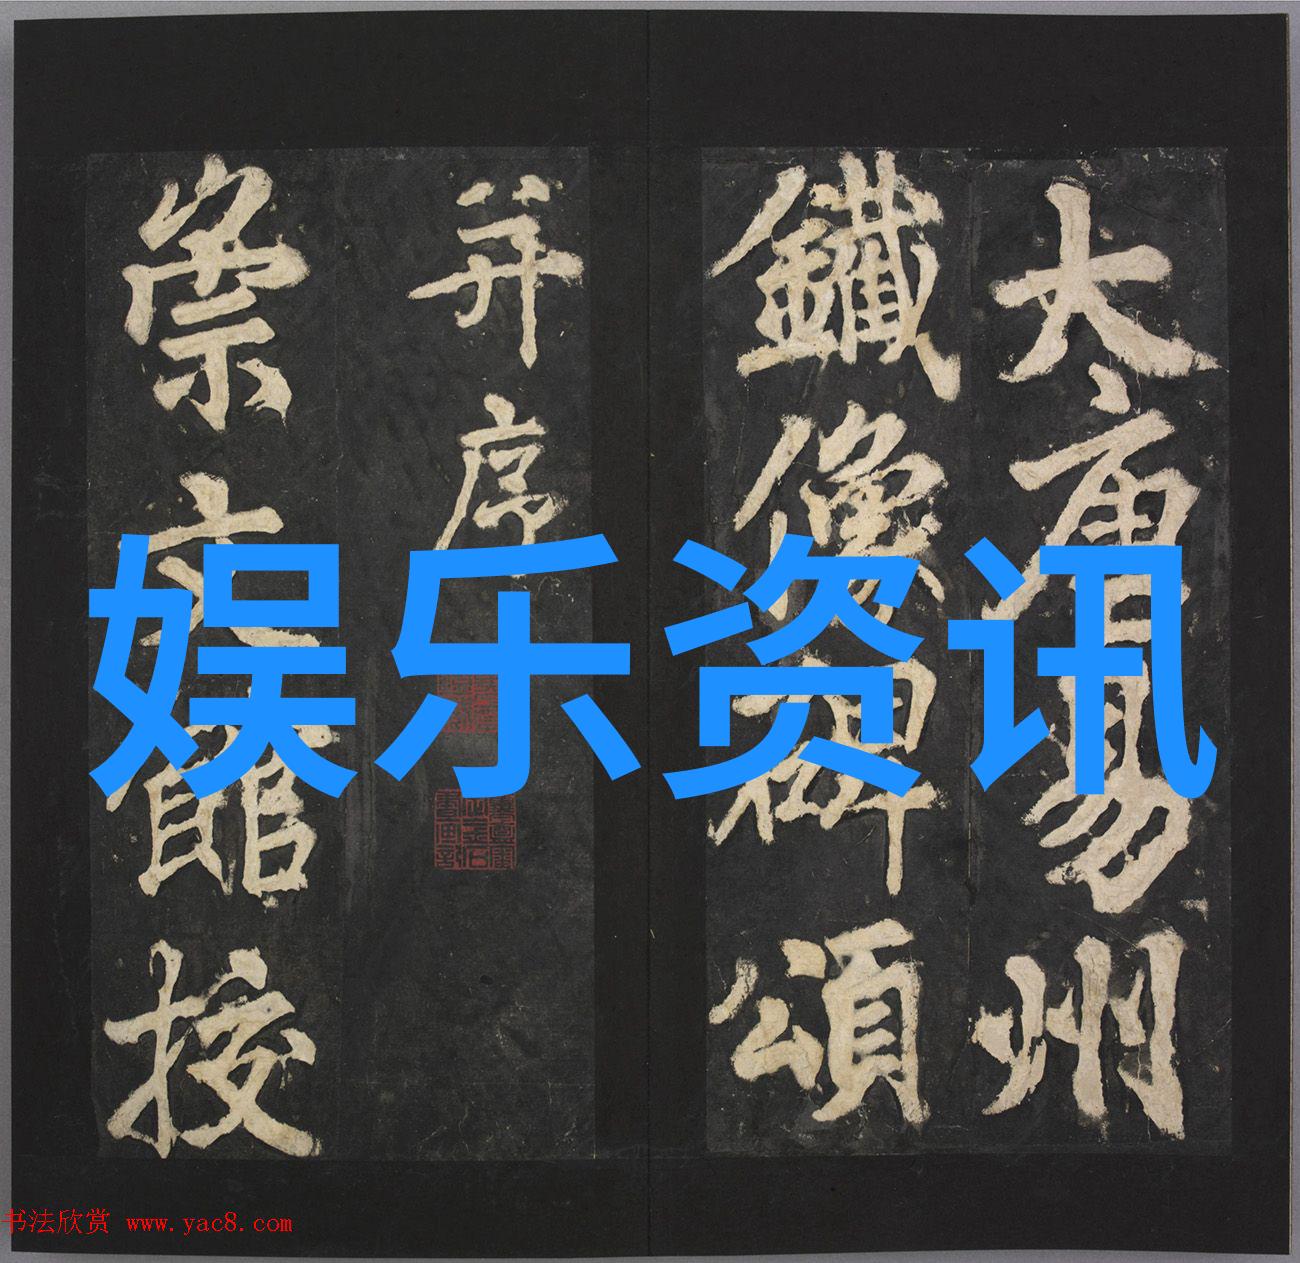 大唐易州
鐵像碑頌
并序
崇文館挍
娱乐资讯
书法欣赏 www.yac8.com